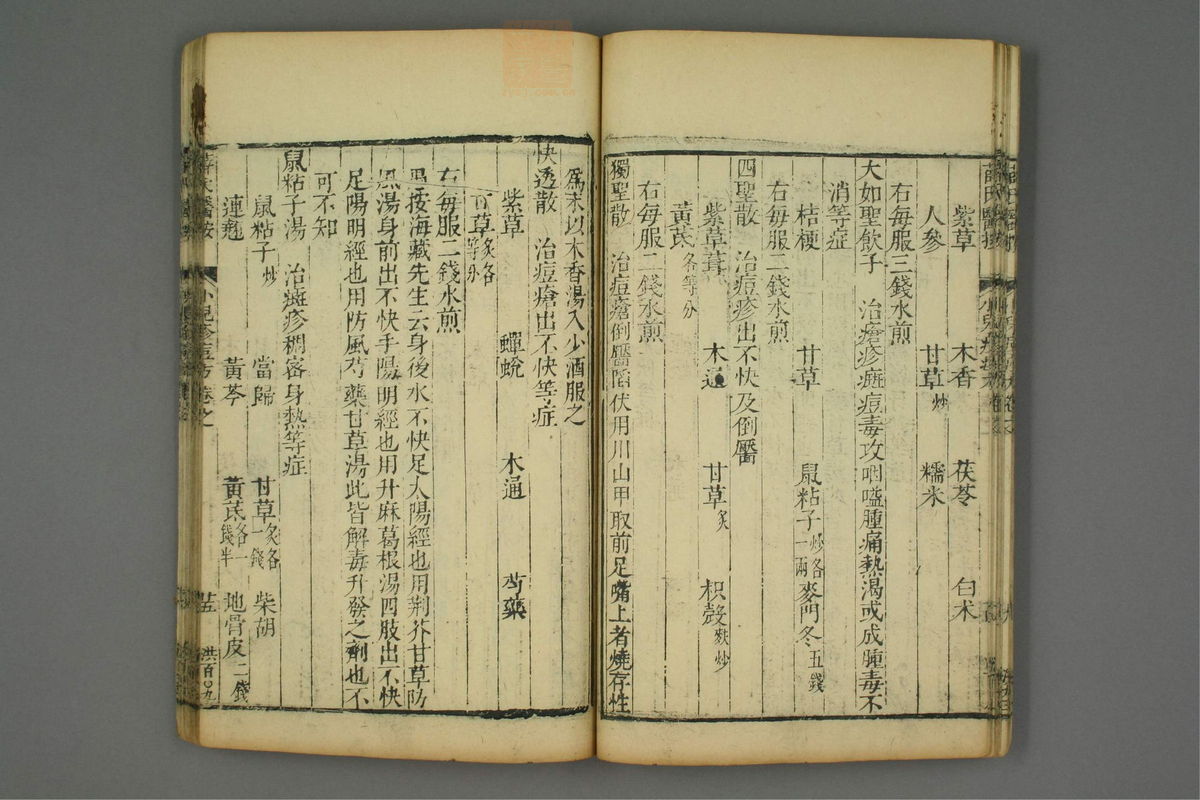 紫草　木香　茯苓　白朮
人參　甘草炒　糯米
右每服三錢水煎
大如聖飲子　治瘡疹癍痘毒攻咽嗌腫痛熱渴或成腫毒不
消等症
桔梗　甘草　鼠粘子炒各一兩　麥門冬五錢
右每服二錢水煎
四聖散　治痘疹出不快及倒靨
紫草茸　木通　甘草炙　枳殼麩炒
黃芪各等分
右每服二錢水煎
獨聖散　治痘瘡倒靨陷伏用川山甲取前足嘴上者燒存性
爲末以木香湯入少酒服之
快透散　治痘瘡出不快等症
紫草　蟬蛻　木通　芍藥
甘草炙各等分
右每服二錢水煎
愚按海藏先生云身後水不快足太陽經也用荆芥甘草防
風湯身前出不快手陽明經也用升麻葛根湯四肢出不快
足陽明經也用防風芍藥甘草湯此皆解毒升發之劑也不
可不知
鼠粘子湯　治癍疹稠密身熱等症
鼠粘子炒　當歸　甘草炙各一錢　柴胡
連翹　黃芩　黃芪各一錢半　地骨皮二錢
薛氏醫按　小兒痘疹方　卷之